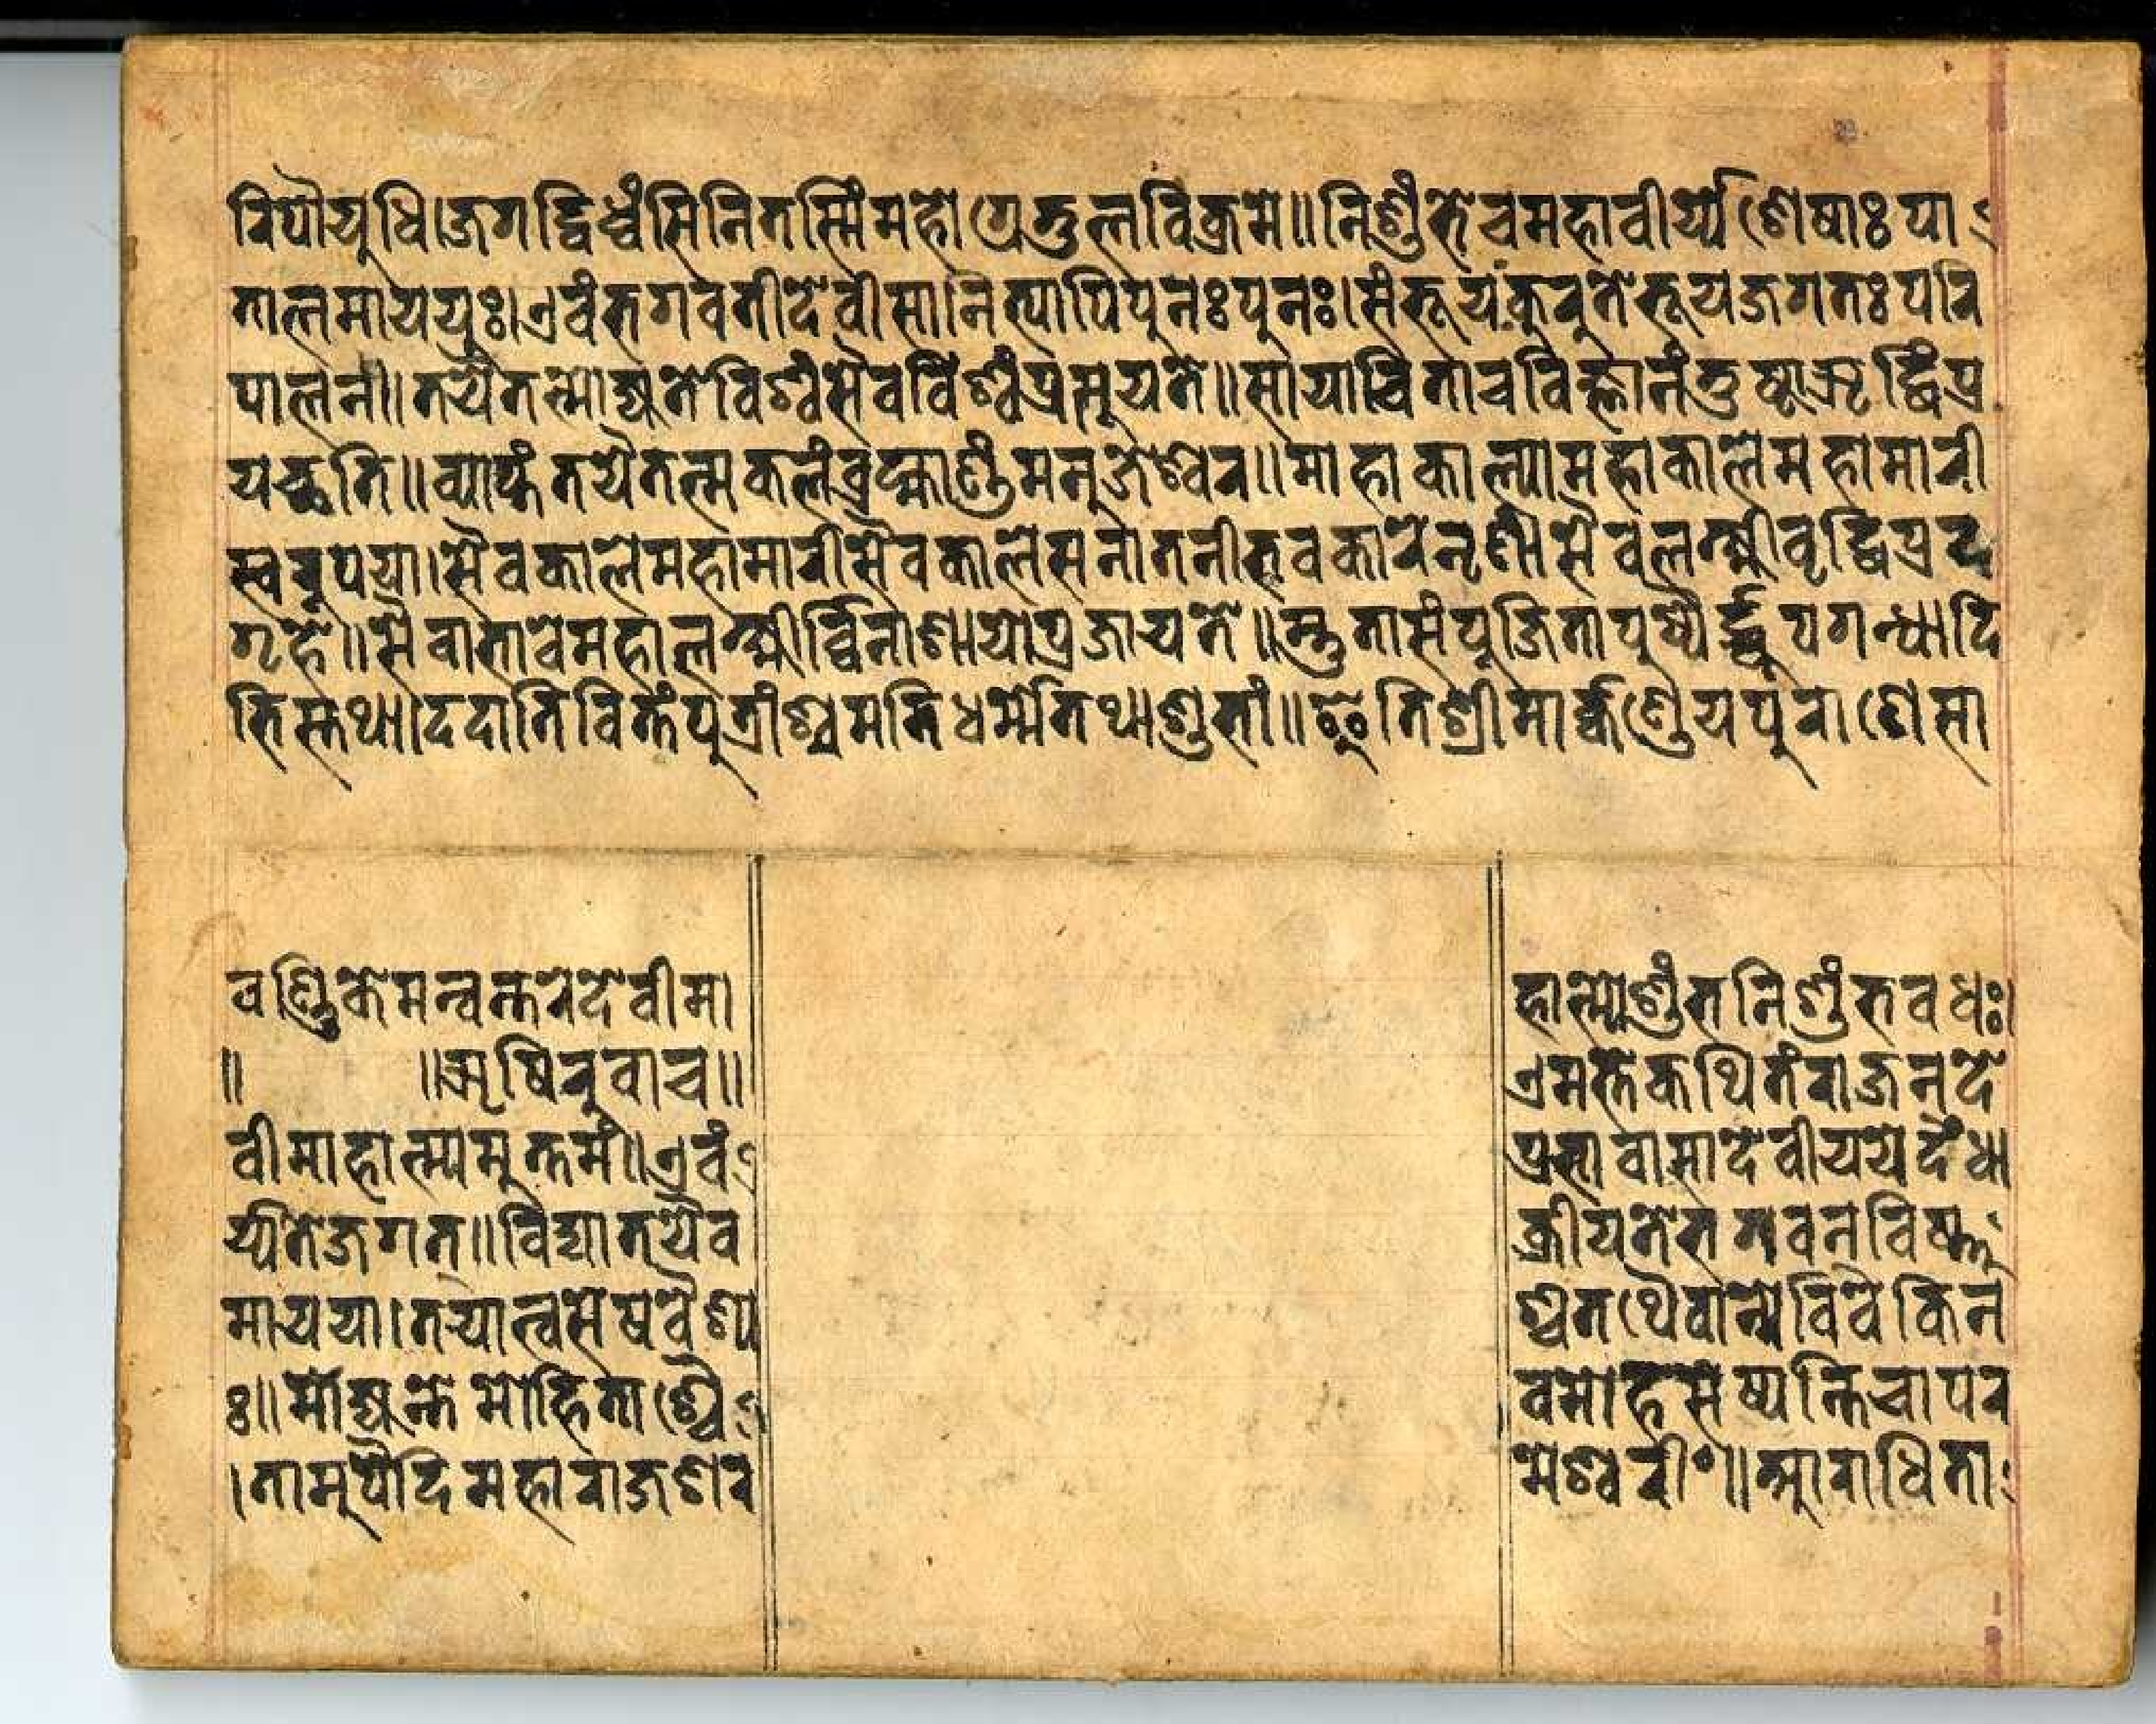 रिपौयुधि।जगद्विध्वंसिनितस्मिंमहोग्रेतुलविक्रमे॥निशुंभेचमहावीर्य्येशेषाःपा
तालमाययुः।एवंभगवतीदेवीसानित्यापिपुनःपुनः।संभूयकुरुतेभूयजगतःपरि
पालनं॥तयैतन्मोह्यतेविश्वंसैवविश्वंप्रसूयते॥सायाचिताचविज्ञानंतुष्टाऋद्धिंप्र
यच्छति॥व्याप्तंतयैतत्सकलंब्रह्माण्डंमनुजेश्वर॥माहाकाल्यामहाकालेमहामारी
स्वरूपया।सैवकालेमहामारीसैवकालेसनातनीभवकारेनृणांसैवलक्ष्मीवृद्धिप्रद
गृहे॥सैवाभावेमहालक्ष्मीर्व्विनाशायोप्रजायते॥स्तुतासंपूजितापुष्पैर्द्धूपगन्धादि
भिस्तथा।ददातिवित्तंपुत्रांश्चमतिधर्म्मेतथाशुभां॥इतिश्रीमार्क्कण्डेयपुराणेसा
वर्ण्णिकेमन्वन्तरेदेवीमा हात्म्येशुंभनिशुंभवधः।
॥ ॥ऋषिरुवाच॥ एमत्तेकथितंराजन्दे
वीमाहात्म्यमुत्तमं॥एवं प्रभावासादेवीययेदंधा
र्य्यतेजगत्॥विद्यातयैव क्रीयतेभगवन्विष्णु
मायया।तयात्वमेषवैश्य श्चतथैवान्येविवेकिन
ः॥मोह्यन्तेमोहिताश्चै वमोहमेष्यन्तिचापर
।तामुपैदिमहाराजशर मेश्वरीं॥आराधिता